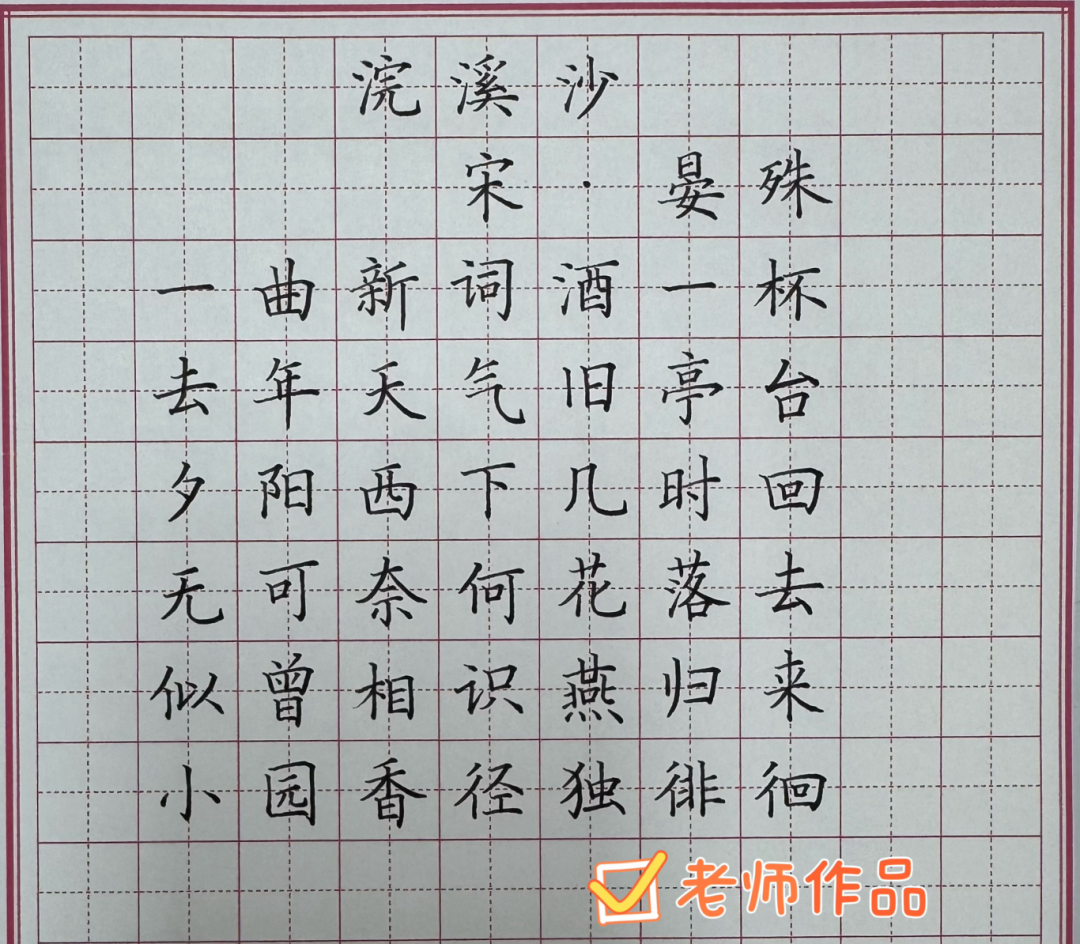 浣溪沙
宋·晏殊
一曲新词酒一杯
去年天气旧亭台
夕阳西下几时回
无可奈何花落去
似曾相识燕归来
小园香径独徘徊
老师作品